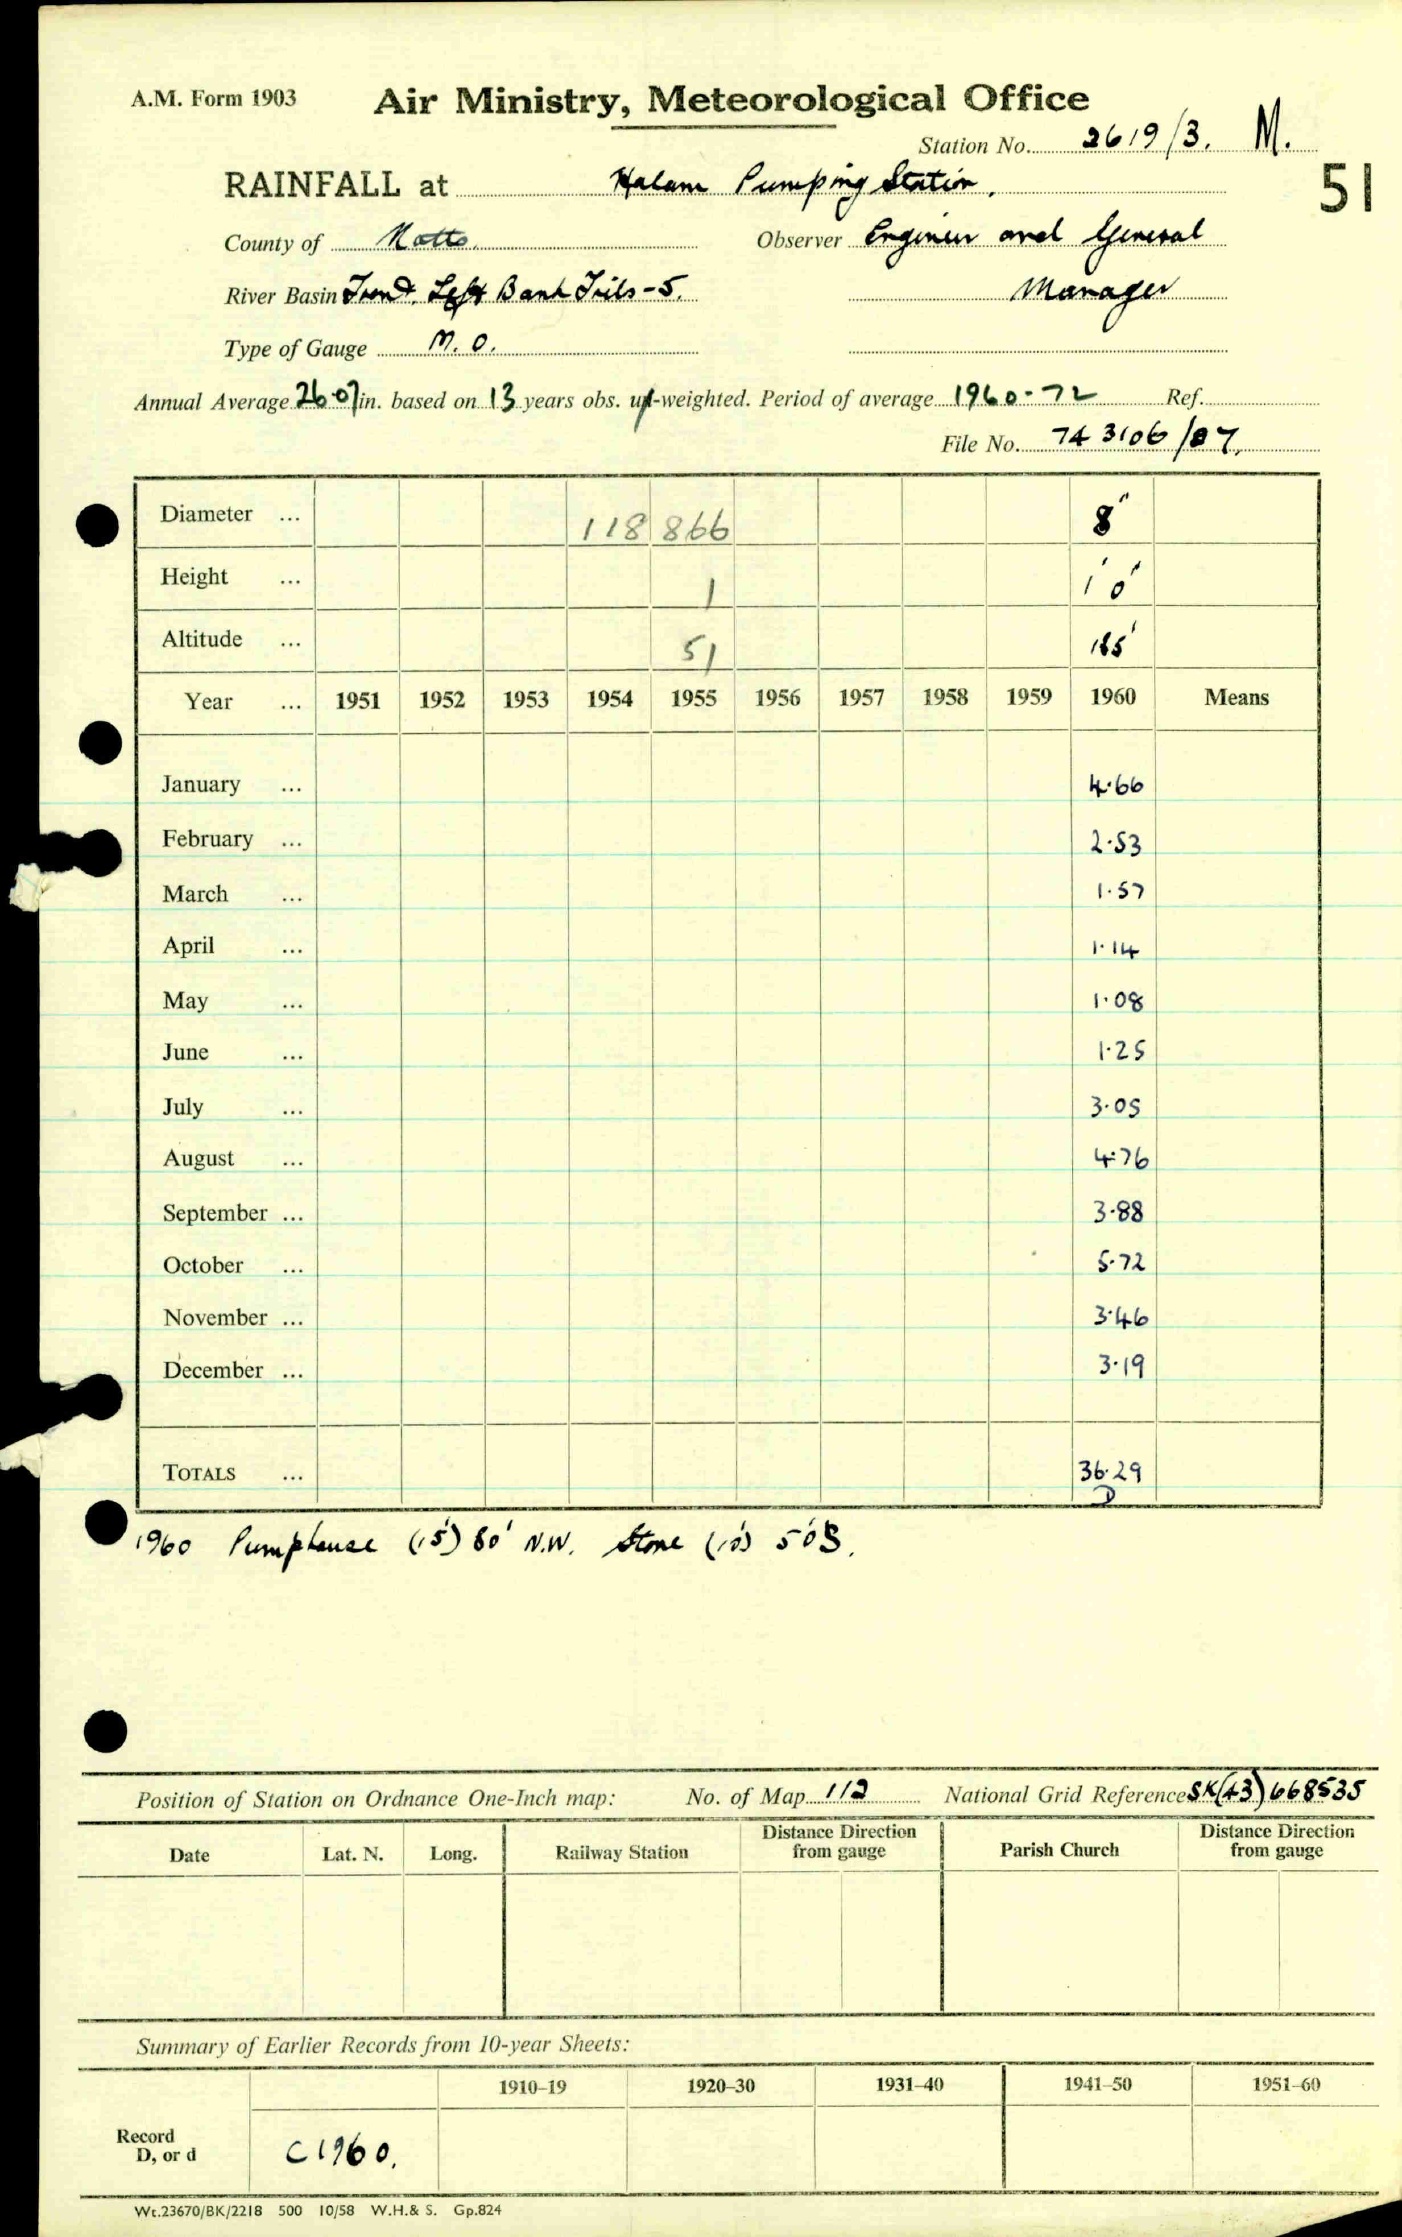 A.M. Form 1903
Air Ministry, Meteorological Office
Station No. 2619/3. M.
51
RAINFALL at Halam Pumping Station.
County of Notts. Observer Engineer and General
River Basin Trent. Left Bank Tribs-5. Manager
Type of Gauge M.O.
Annual Average 26.07 in. based on 13 years obs. un-weighted. Period of average 1960-72 Ref.
File No. 743106/87.
Diameter ... 118 866 8"
Height ... 1 1' 0"
Altitude ... 51 185'
Year ... 1951 1952 1953 1954 1955 1956 1957 1958 1959 1960 Means
January ... 4.66
February ... 2.53
March ... 1.57
April ... 1.14
May ... 1.08
June ... 1.25
July ... 3.05
August ... 4.76
September ... 3.88
October ... 5.72
November ... 3.46
December ... 3.19
TOTALS ... 36.29
D
1960 Pumphouse (15') 80' N.W. Stone (10') 50' S.
Position of Station on Ordnance One-Inch map: No. of Map 112 National Grid Reference SK(43)668535
Date Lat. N. Long. Railway Station Distance Direction from gauge Parish Church Distance Direction from gauge
Summary of Earlier Records from 10-year Sheets:
1910–19 1920–30 1931–40 1941–50 1951–60
Record
D, or d C1960.
Wt.23670/BK/2218 500 10/58 W.H.& S. Gp.824